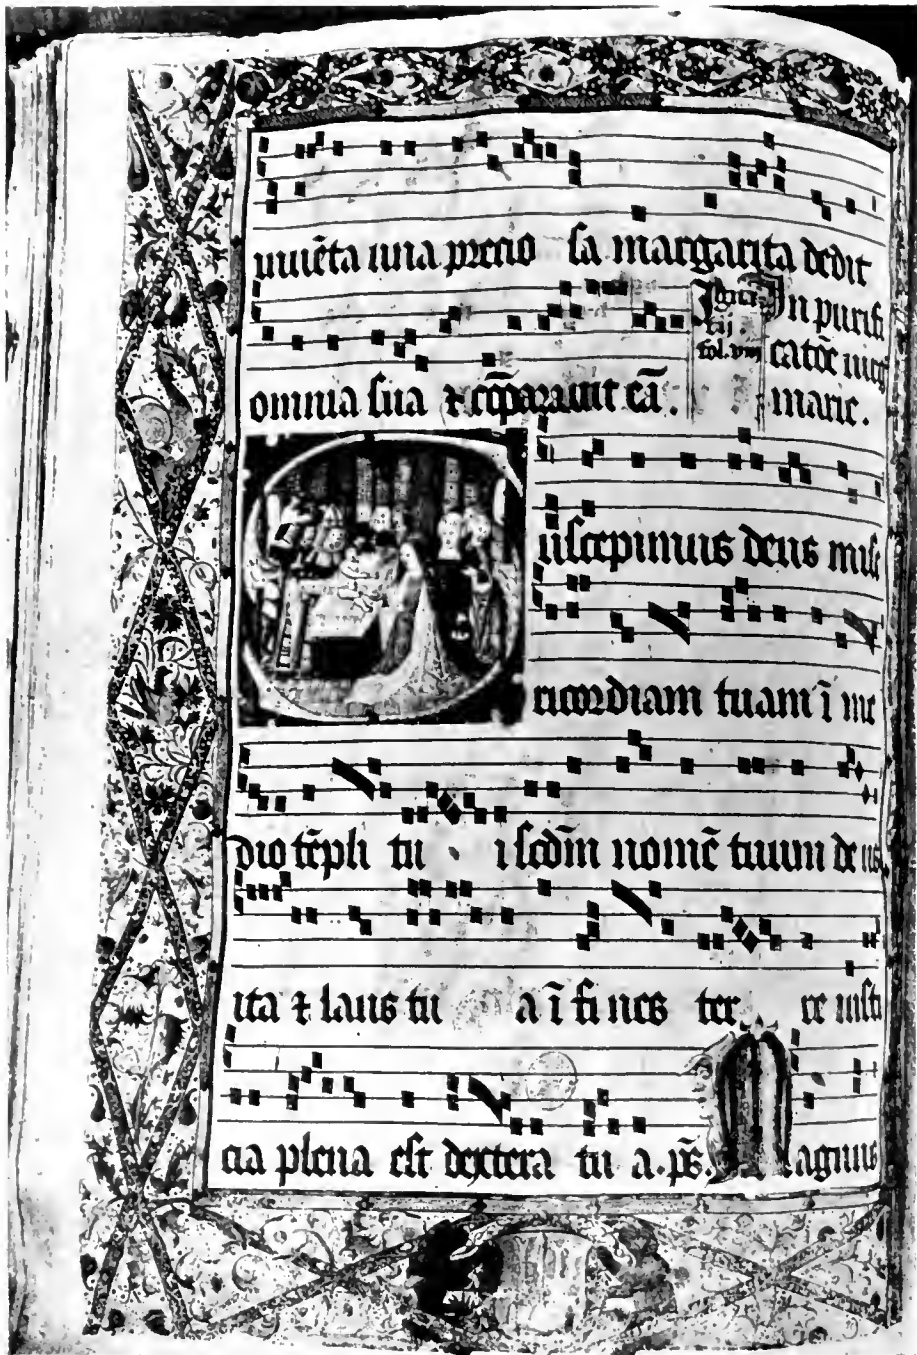 inuēta una precio sa margarita dedit
omnia sua ⁊ cōparauit eā.
In purifi
catōe
marie.
fol. viij
Suscepimus deus mise
ricordiam tuam ī me
dio tēpli tu i scdm̄ nomē tuum deus
ita ⁊ laus tu a ī fi nes ter re iusti
cia plena est dextera tu a. ps. Magnus